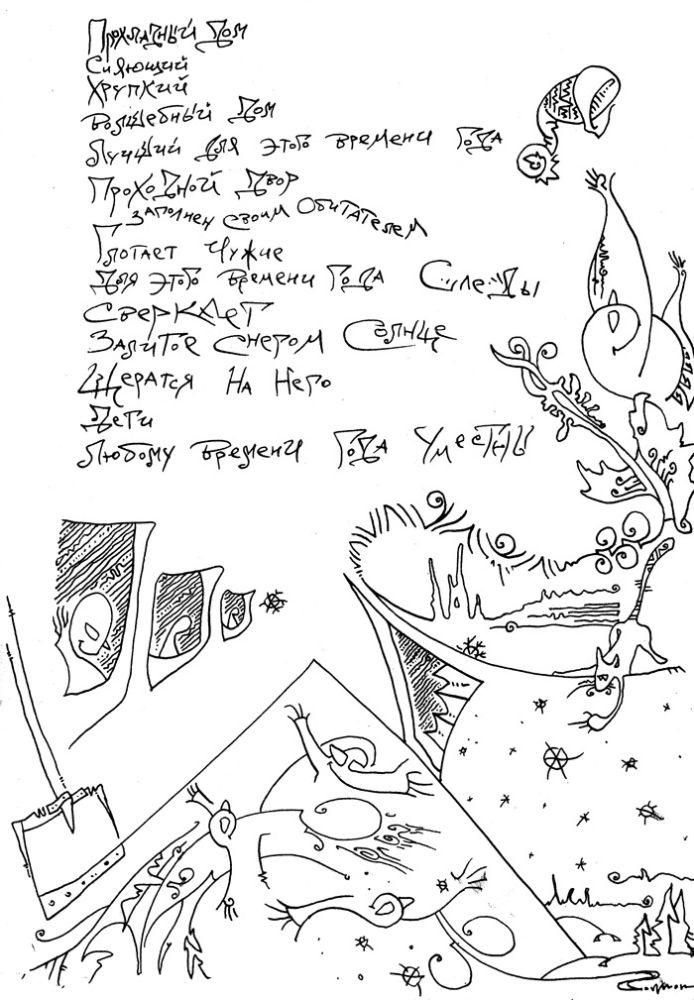 Прохладный Дом
Сияющий
Хрупкий
Волшебный Дом
Лучший Для этого времени Года
Проходной Двор
Заполнен своим Обитателем
Глотает Чужие
Для этого времени Года Следы
Сверкает
Залитое Снегом Солнце
Щерятся На Него
Дети
Любому времени Года Уместны